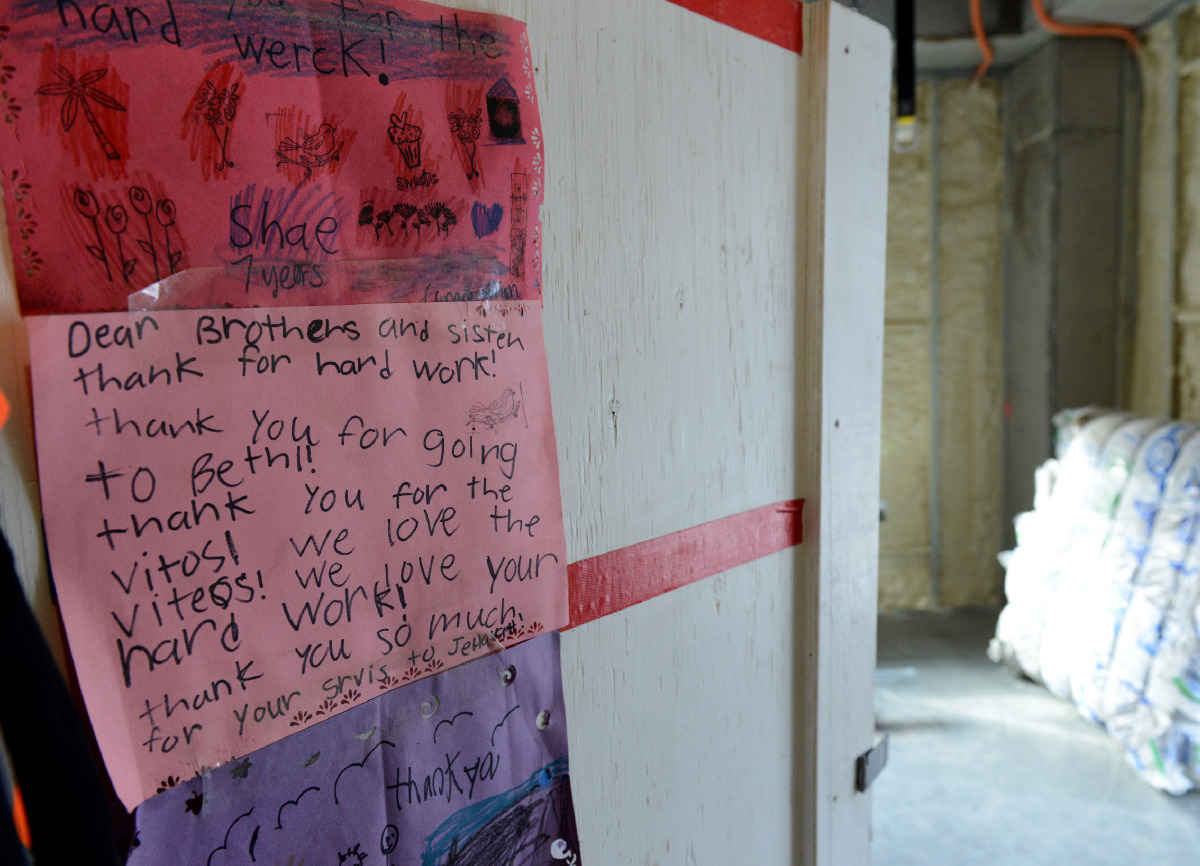 hard you for the
werck!
sweetie
Shae
7 years
Dear Brothers and sister
thank for hard work!
thank you for going
to Bethl!
thank you for the
vitos! we love the
viteos! we love your
hard work!
thank you so much,
for your srvis to
thank ya